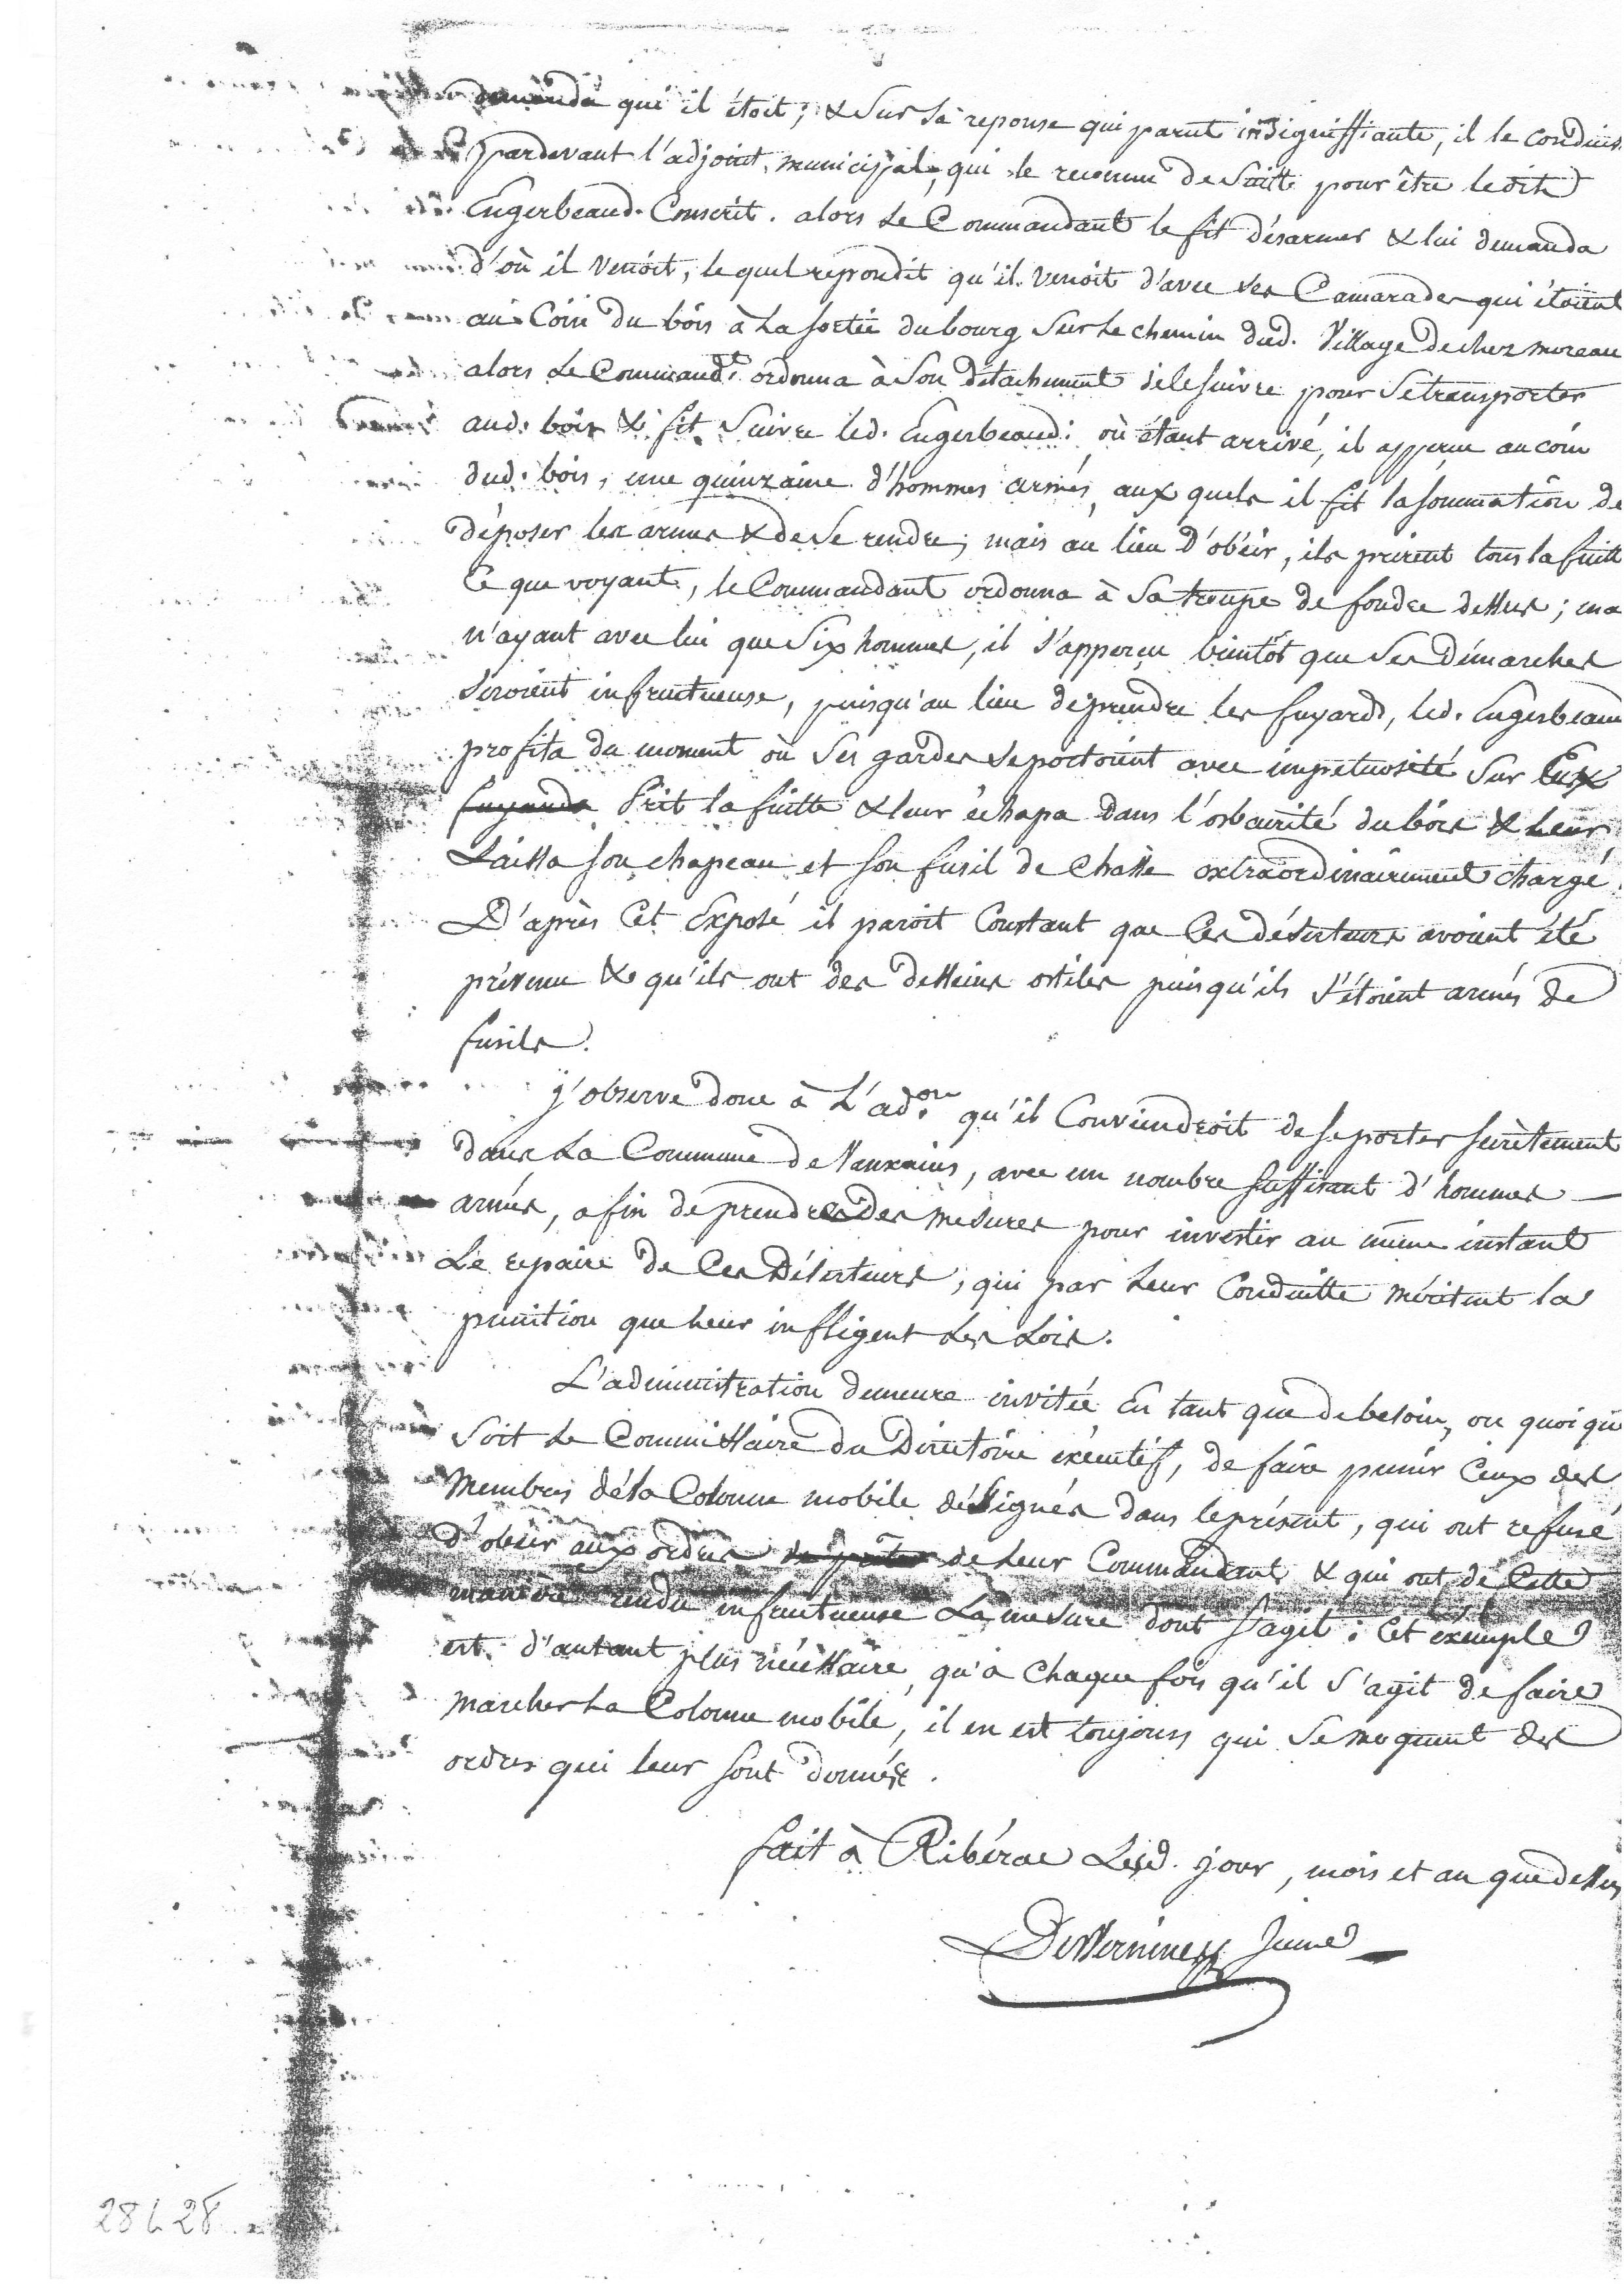 demanda qui il étoit; & Sur sa reponse qui parut insigniffiante, il le conduis
pardevant l'adjoint municipal, qui le reconnu de Suitte pour être ledit
Eugerbeaud. Conscrit. alors Le Commandant le fit désarmer & lui demanda
d'où il venoit, lequel repondit qu'il venoit d'avec ses Camarades qui étoient
au Coin du bois à La sortie du bourg Sur Le chemin dud. Village de chez moreau
alors Le Commandt. ordonna à Son détachement de le suivre pour Se transporter
aud. bois & fit Suivre led. Eugerbeaud: où étant arrivé, il apperçu au coin
dud. bois, une quinzaine d'hommes armés, aux quels il fit la sommation de
déposer les armes & de Se rendre; mais au lieu d'obéir, ils prirent tous la fuitte
Ce que voyant, le Commandant ordonna à Sa troupe de fondre dessus; ma
n'ayant avec lui que Six hommes, il s'apperçu bientôt que Ses Démarches
Seroient infructueuse, puisqu'au lieu de prendre les fuyards, led. Eugerbeaud
profita du moment où Ses gardes Se portoient avec impetuosité Sur Eux
fuyards Prit la fuitte & leur échapa dans l'osbcurité du bois & Leur
Laissa son chapeau et son fusil de Chasse extraordinairement chargé.
D'après Cet Exposé il paroit Constant que Ces déserteurs avoient été
prévenu & qu'ils ont des desseins ostiles puisqu'ils s'étoient armés de
fusils.
j'observe donc à L'adon. qu'il Conviendroit de se porter secrètement
dans La Commune de Vanxains, avec un nombre suffisant d'hommes —
armés, afin de prendre des mesures pour investir au même instant
Le repaire de Ces Déserteurs, qui par Leur Conduitte méritent la
punition que Leur infligent Les Lois.
L'administration demeure invitée En tant que de besoin, ou quoi qu
Soit Le Commissaire du Directoire exécutif, de faire punir Ceux des
Membres de la Colonne mobile désignés dans le présent, qui ont refusé
d'obéir aux ordres de Leur Commandant & qui ont de Cette
manière rendu infructueuse La mesure dont s'agit. Cet exemple
est d'autant plus nécessaire, qu'a Chaque fois qu'il S'agit de faire
marcher La Colonne mobile, il en est toujours qui Se moquent des
ordres qui leur sont donnés.
fait à Ribérac Lesd. jour, mois et an que dessus
Jeune
28 L 28